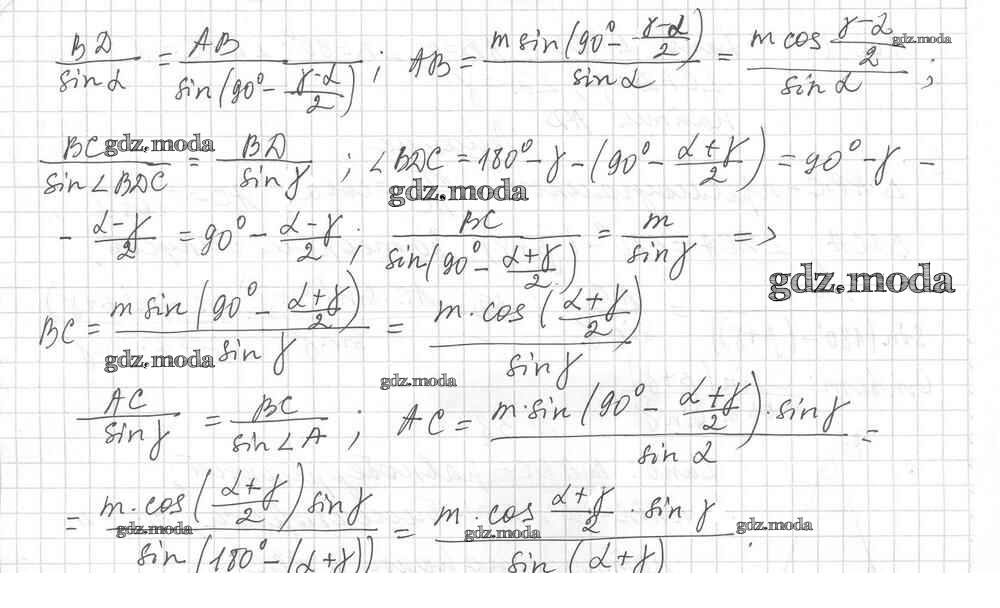 BD/sin α = AB/sin(90° − (γ−α)/2) ; AB = m sin(90° − (γ−α)/2)/sin α = m cos (γ−α)/2 / sin α ;
BC/sin∠BDC = BD/sin γ ; ∠BDC = 180° − γ − (90° − (α+γ)/2) = 90° − γ −
− (α−γ)/2 = 90° − (α−γ)/2 ; BC/sin(90° − (α+γ)/2) = m/sin γ =>
BC = m sin(90° − (α+γ)/2)/sin γ = m·cos((α+γ)/2)/sin γ
AC/sin γ = BC/sin∠A ; AC = m·sin(90° − (α+γ)/2)·sin γ/sin α =
= m·cos((α+γ)/2) sin γ/sin(180° − (α+γ)) = m·cos (α+γ)/2 · sin γ/sin(α+γ) .
gdz.moda
gdz.moda
gdz.moda
gdz.moda
gdz.moda
gdz.moda
gdz.moda
gdz.moda
gdz.moda